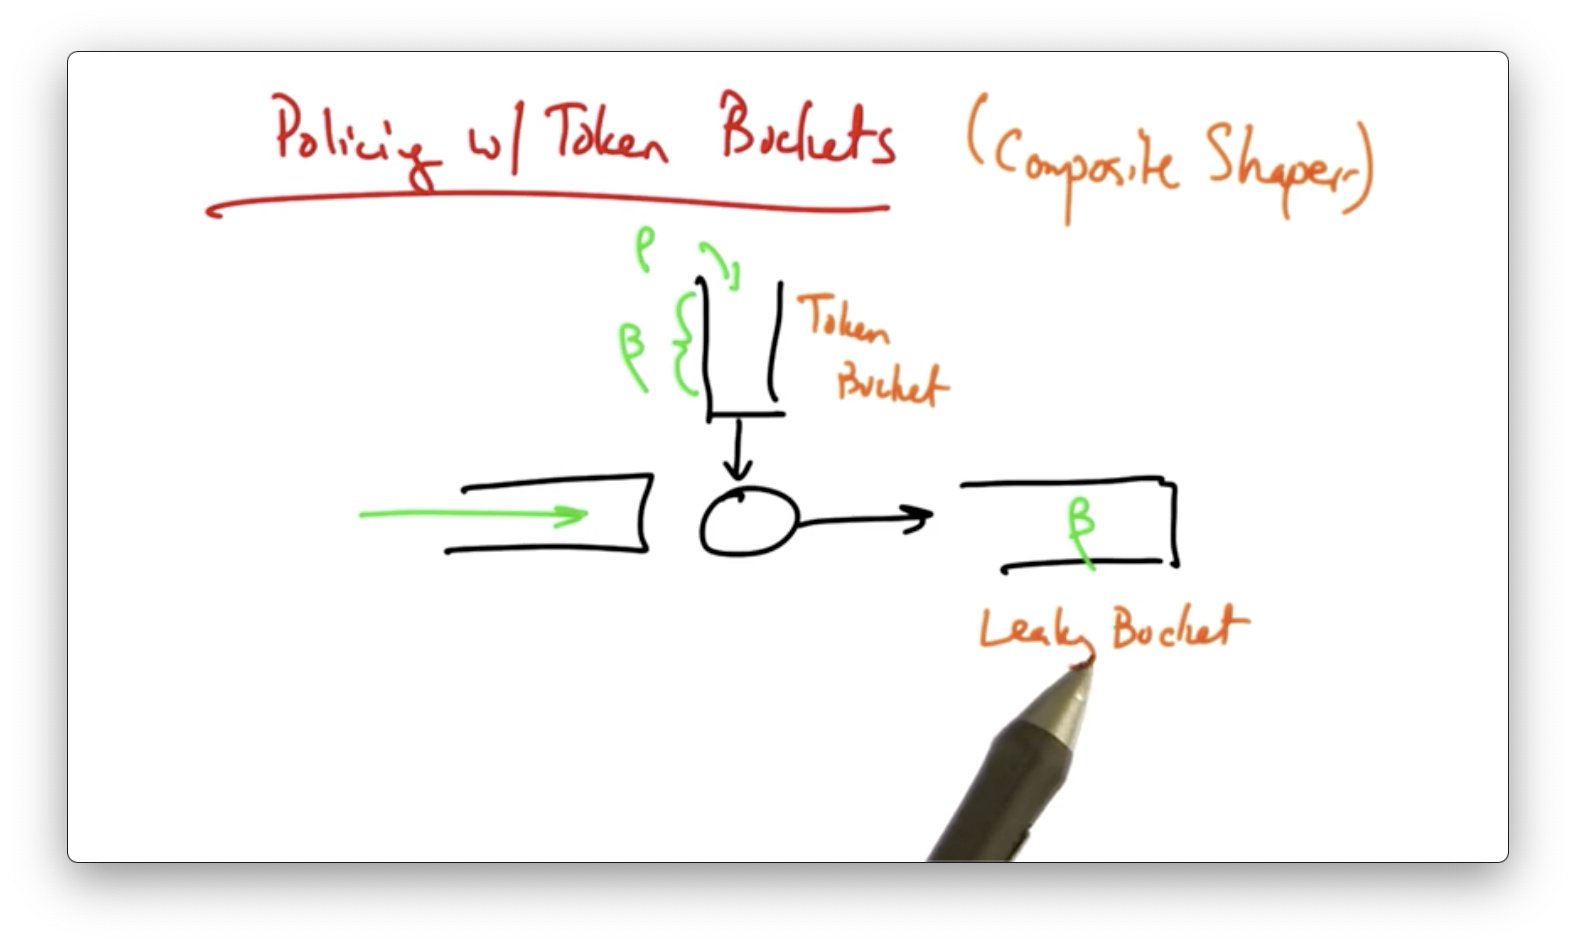 Policing w/ Token Buckets (Composite Shaper)
ρ
β
Token
Bucket
β
Leaky Bucket